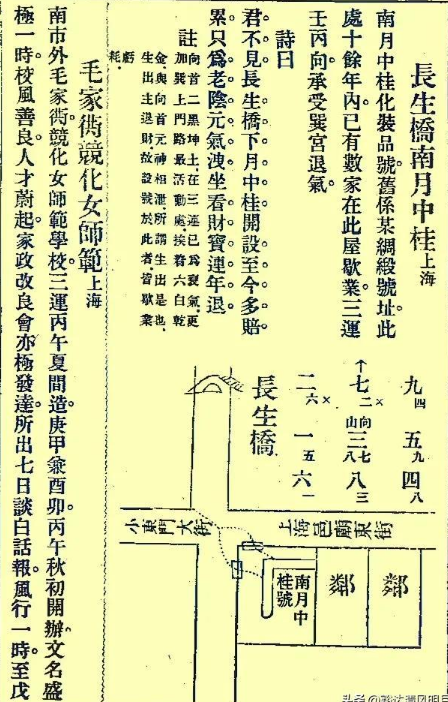 長生橋南月中桂上海
南月中桂化裝品號舊係某綢緞號址。此
處十餘年內。已有數家在此屋歇業。三運
壬丙向承受巽宮退氣。
詩曰
君不見長生橋下月中桂。開設至今多賠
累。只爲老陰元氣洩。坐看財寶連年退。
註 向首二黑坤土。在三運已爲衰氣。更
加巽上門路最活動處。挨着六白乾
金。與向首元神相泄。所謂生出是也。
生出主退財。故設號於此者。皆歇業
虧耗
九四 五九 四八
↑七二× 山向三八七 八三
二六× 一五 六一
長生橋
小東門大街
上海邑廟東街
南月中桂號
鄰
鄰
毛家衖競化女師範上海
南市外毛家衖競化女師範學校。三運丙午夏間造。庚甲兼酉卯。丙午秋初開辦。文名盛
極一時。校風善良。人才蔚起。家政改良會亦極發達。所出七日談白話報。風行一時。至戊